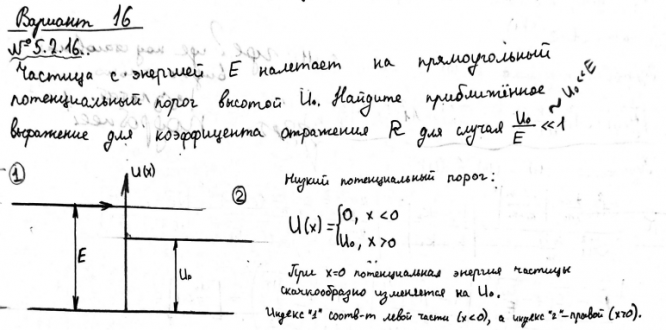 Вариант 16
№5.2.16.
Частица с энергией E налетает на прямоугольный
потенциальный порог высотой U₀. Найдите приближённое
выражение для коэффицента отражения R для случая U₀/E ≪ 1 ~ U₀ ≪ E
① U(x) ②
E U₀
Низкий потенциальный порог:
U(x) = {0, x < 0
U₀, x > 0
При x=0 потенциальная энергия частицы
скачкообразно изменяется на U₀.
Индекс "1" соотв-т левой части (x<0), а индекс "2" - правой (x>0).